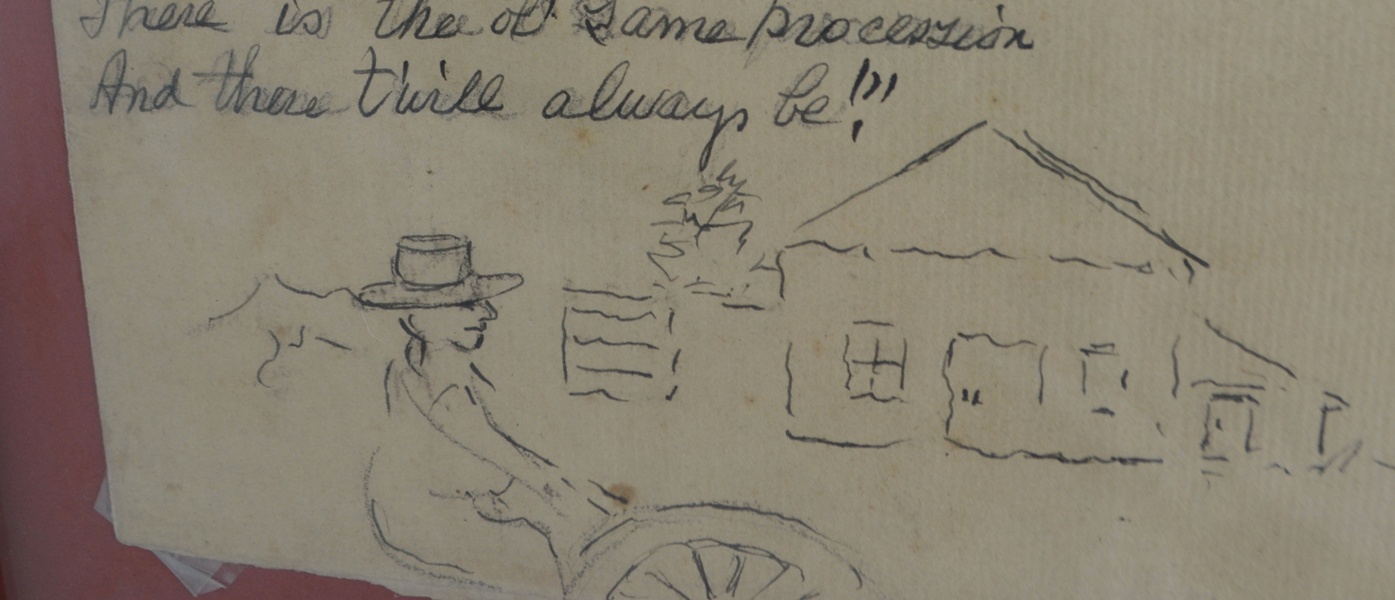 There is the ol' same procession
And there t'will always be!"